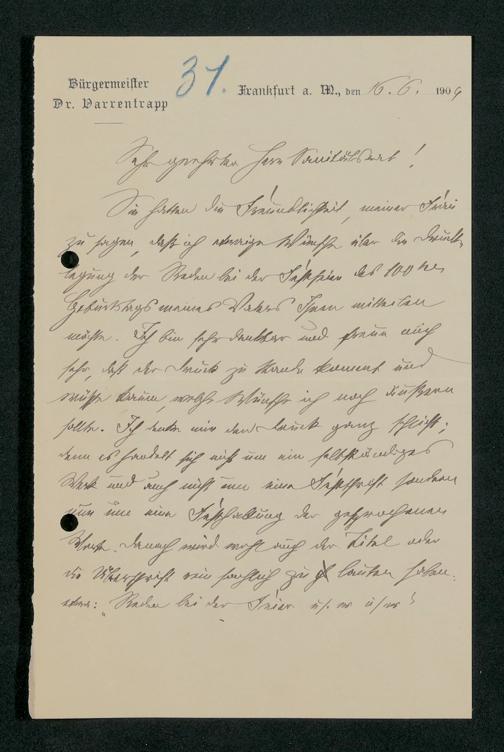 Bürgermeister
Dr. Varrentrapp
31.
Frankfurt a. M., den 16. 6. 1909
Sehr geehrter Herr Sanitätsrat!
Sie hatten die Freundlichkeit, meiner Frau
zu sagen, daß ich etwaige Wünsche über die Druck-
legung der Reden bei der Festfeier des 100ten
Geburtstags meines Vaters Ihnen mitteilen
möchte. Ich bin sehr dankbar und freue mich
sehr, daß der Druck zu Stande kommt und
wüßte kaum, welche Wünsche ich noch äussern
sollte. Ich denke mir den Druck ganz schlicht;
denn es handelt sich nicht um ein selbständiges
Werk und auch nicht um eine Festschrift sondern
nur um eine Festhaltung der gesprochenen
Worte. Danach wird wohl auch der Titel oder
die Überschrift rein sachlich zu lauten haben.
etwa: "Reden bei der Feier u. s. w. u. s. w."